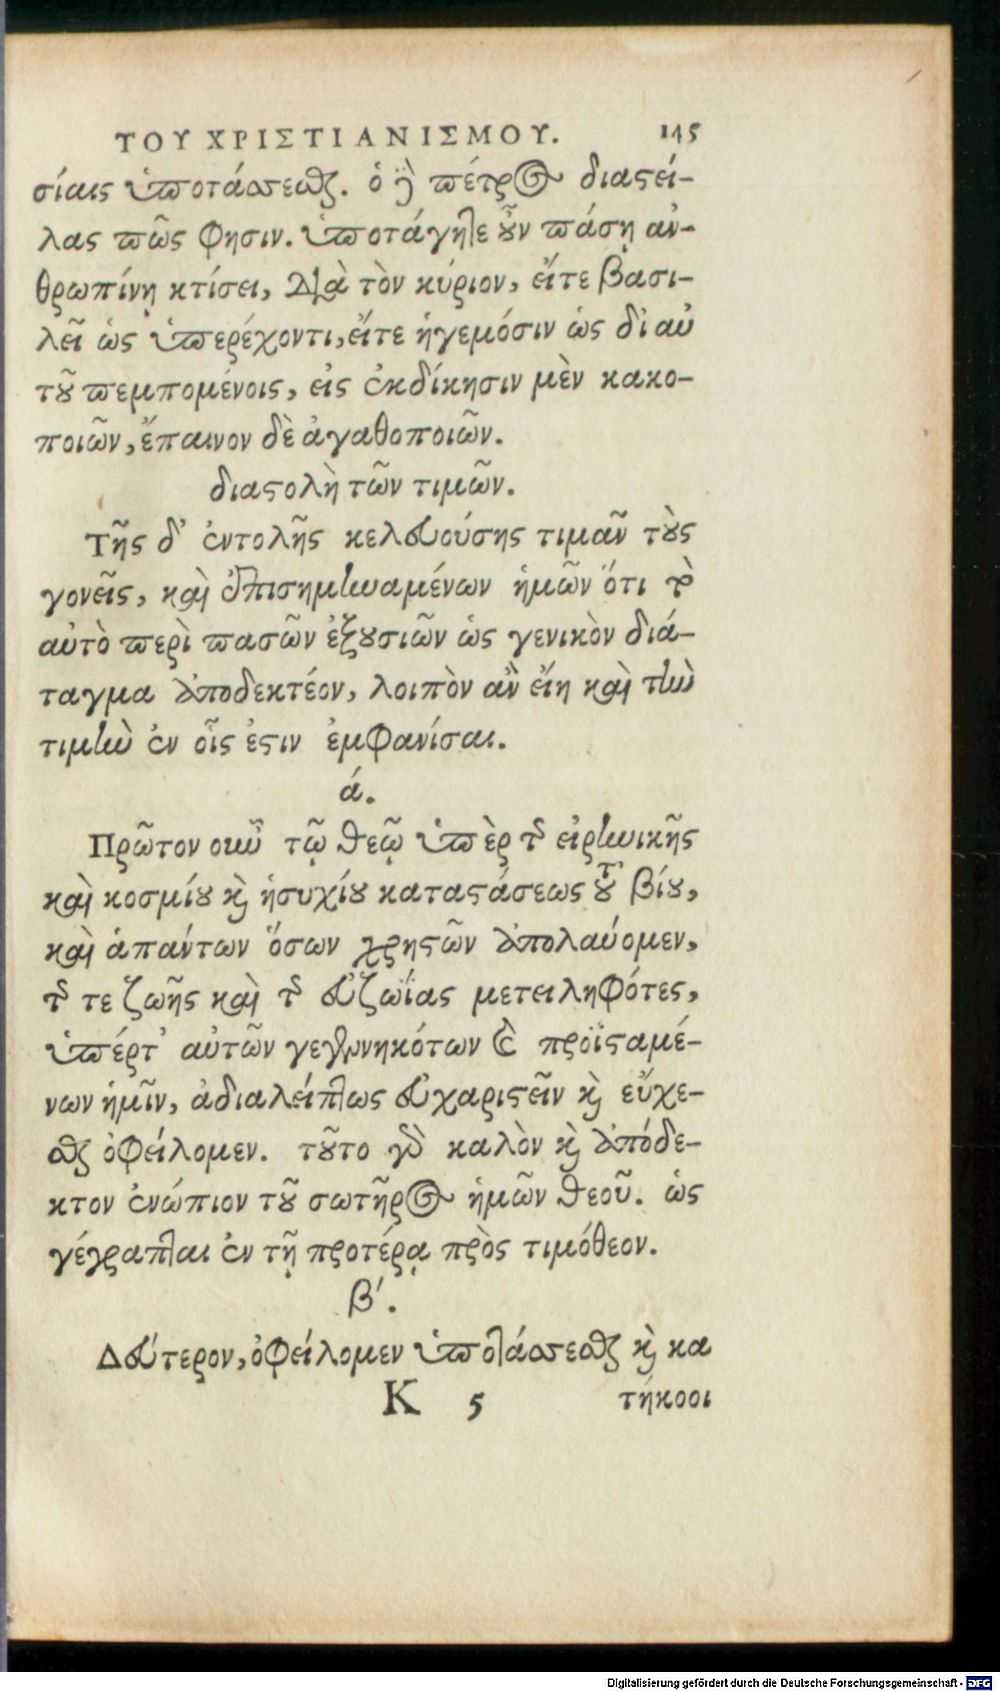 ΤΟΥ ΧΡΙΣΤΙΑΝΙΣΜΟΥ. 145
σίαις ὑποτάσσεσθαι. ὁ δὲ πέτρος διαστεί-
λας πῶς φησιν. ὑποτάγητε οὖν πάσῃ ἀν-
θρωπίνῃ κτίσει, διὰ τὸν κύριον, εἴτε βασι-
λεῖ ὡς ὑπερέχοντι, εἴτε ἡγεμόσιν ὡς δι αὐ
τοῦ πεμπομένοις, εἰς ἐκδίκησιν μὲν κακο-
ποιῶν, ἔπαινον δὲ ἀγαθοποιῶν.
διαστολὴ τῶν τιμῶν.
Τῆς δ' ἐντολῆς κελευούσης τιμᾶν τοὺς
γονεῖς, καὶ ἐπισημηναμένων ἡμῶν ὅτι τὸ
αὐτὸ περὶ πασῶν ἐξουσιῶν ὡς γενικὸν διά-
ταγμα ἀποδεκτέον, λοιπὸν ἂν εἴη καὶ τὴν
τιμὴν ἐν οἷς ἐστιν ἐμφανίσαι.
ά.
Πρῶτον οὖν τῷ θεῷ ὑπὲρ τῆς εἰρηνικῆς
καὶ κοσμίου καὶ ἡσυχίου καταστάσεως τοῦ βίου,
καὶ ἁπάντων ὅσων χρηστῶν ἀπολαύομεν,
τῆς τε ζωῆς καὶ τῆς εὐζωΐας μετειληφότες,
ὑπέρτ' αὐτῶν γεγεννηκότων καὶ προϊσταμέ-
νων ἡμῖν, ἀδιαλείπτως εὐχαριστεῖν καὶ εὔχε-
σθαι ὀφείλομεν. τοῦτο γὰρ καλὸν καὶ ἀπόδε-
κτον ἐνώπιον τοῦ σωτῆρος ἡμῶν θεοῦ. ὡς
γέγραπται ἐν τῇ προτέρᾳ πρὸς τιμόθεον.
β'.
Δεύτερον, ὀφείλομεν ὑποτάσσεσθαι καὶ κα
K 5 τήκοοι
Digitalisierung gefördert durch die Deutsche Forschungsgemeinschaft - DFG